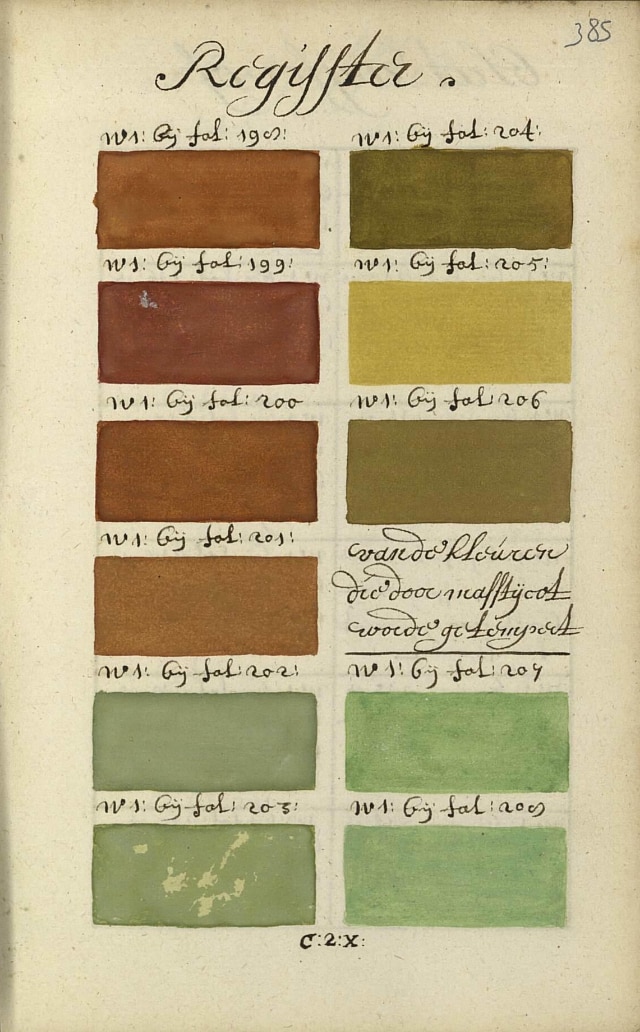 385
Regisster.
N1: bij fol: 198:
N1: bij fol: 199:
N1: bij fol: 200
N1: bij fol: 201:
N1: bij fol: 202:
N1: bij fol: 203:
N1: bij fol: 204:
N1: bij fol: 205:
N1: bij fol: 206
vande kleúren
die door masstijcot
worde getempert
N1: bij fol: 207
N1: bij fol: 208
C:2:X: